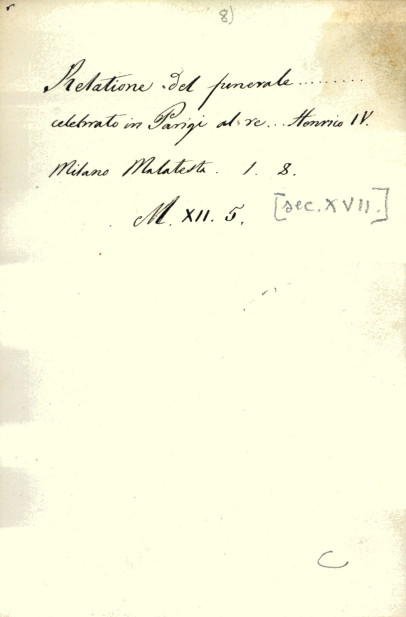 8)
Relatione del funerale .........
celebrato in Parigi al re... Henrico IV.
Milano Malatesta. 1. 8.
M. XII. 5. [sec. XVII.]
C